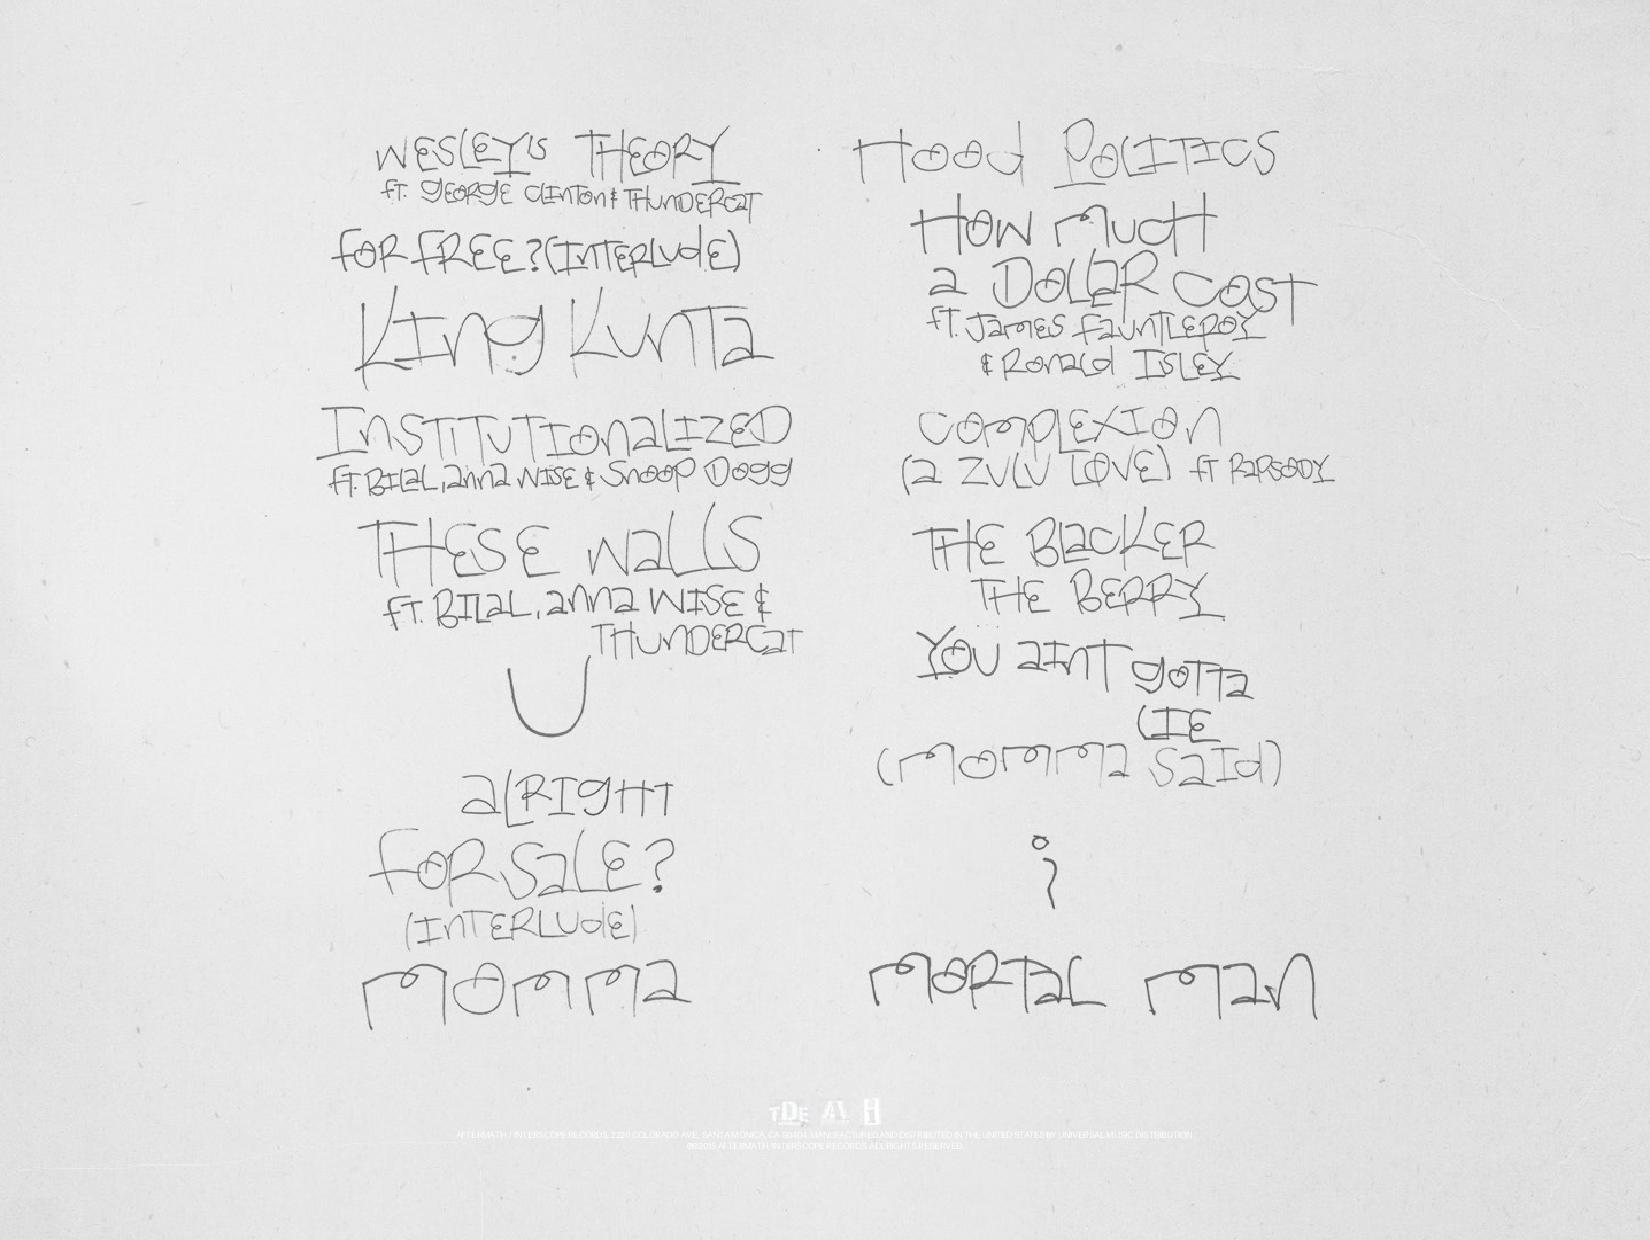 WESLEY'S THEORY
ft. GEORGE CLINTON & THUNDERCAT
FOR FREE? (INTERLUDE)
KING KUNTA
INSTITUTIONALIZED
ft. BILAL, anna WISE & Snoop Dogg
THESE WALLS
ft. BILAL, anna WISE &
THUNDERCAT
U
aLRIGHT
FOR SALE?
(INTERLUDE)
MOMMA
HOOD POLITICS
HOW MUCH
a DOLLAR COST
ft. JAMES FAUNTLEROY
& RONALD ISLEY
COMPLEXION
(a ZULU LOVE) ft RAPSODY
THE BLACKER
THE BERRY
YOU aINT gOTTa
LIE
(MOMMA SAID)
i
MORTAL MAN
TDE
AFTERMATH / INTERSCOPE RECORDS, 2220 COLORADO AVE., SANTA MONICA, CA 90404. MANUFACTURED AND DISTRIBUTED IN THE UNITED STATES BY UNIVERSAL MUSIC DISTRIBUTION.
©2015 AFTERMATH/INTERSCOPE RECORDS ALL RIGHTS RESERVED.